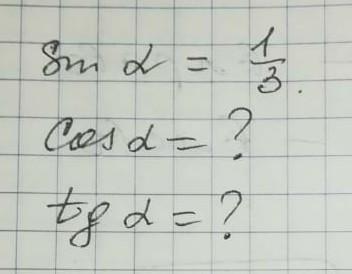 sin α = 1/3.
cos α = ?
tg α = ?